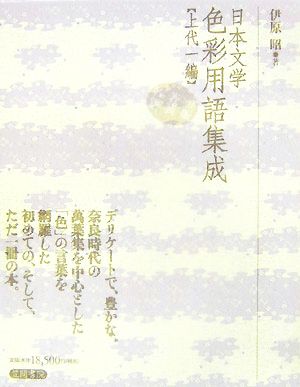 伊原 昭●著
日本文学
色彩用語集成
【上代一編】
デリケートで、豊かな。
奈良時代の
萬葉集を中心とした
「色」の言葉を
網羅した
初めての、そして、
ただ一冊の本。
18,500円
笠間書院